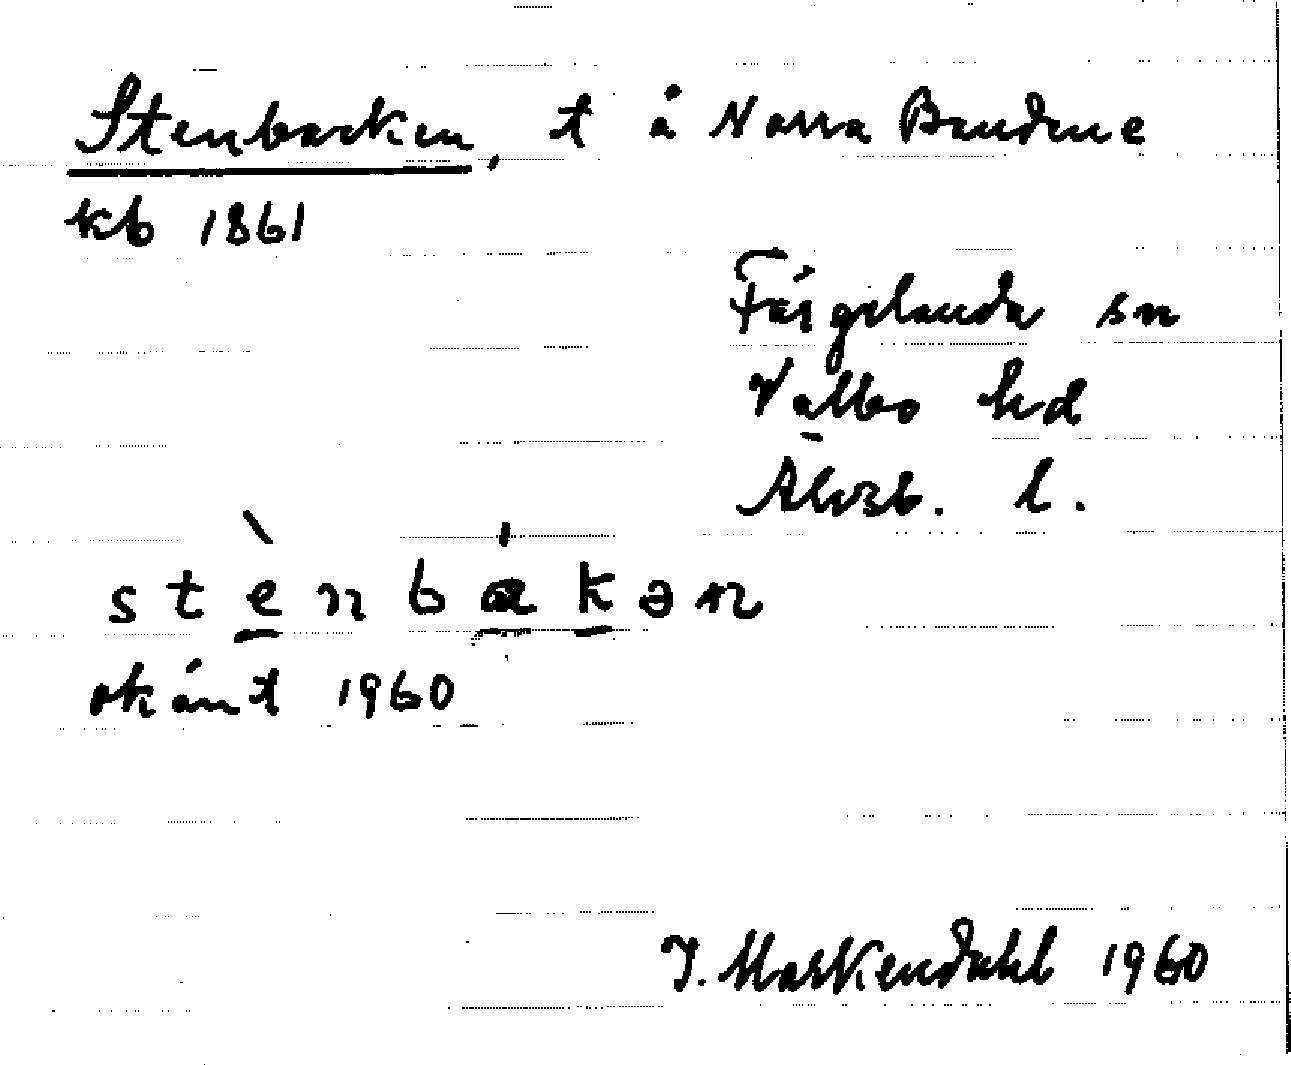 Stenbacken, t å Norra Bandene
kb 1861
Färgelanda sn
Valbo hd
Älvsb. l.
stènbakən
okänt 1960
J. Markendahl 1960